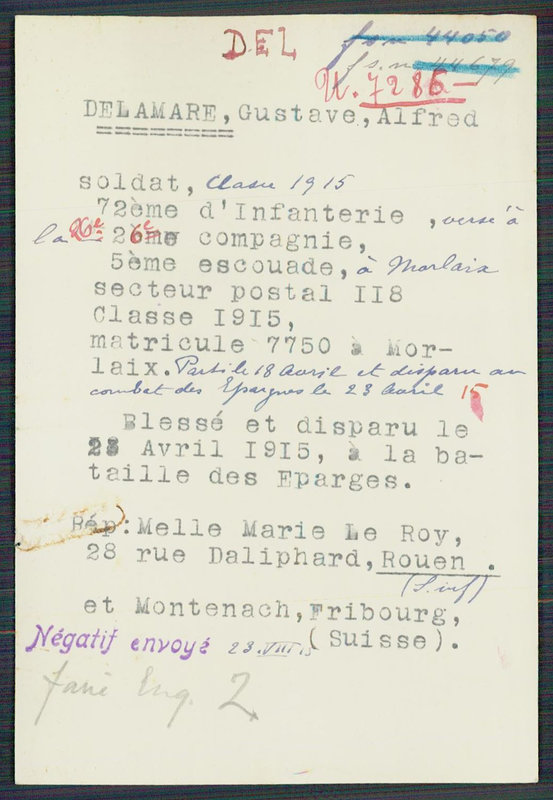 DEL
fsn 44050
fs.n 44679
N. 7286-
DELAMARE, Gustave, Alfred
soldat, classe 1915
72ème d'Infanterie, versé à
la 26e 2ème 6e compagnie,
5ème escouade, à Morlaix
secteur postal II8
Classe I9I5,
matricule 7750 à Mor-
laix. Parti le 18 Avril et disparu au
combat des Epargnes le 23 Avril 15
Blessé et disparu le
23 Avril I9I5, à la ba-
taille des Eparges.
Rép: Melle Marie Le Roy,
28 rue Daliphard, Rouen.
(S. inf)
et Montenach, Fribourg,
(Suisse).
Négatif envoyé 23.VIII 15
faire Enq. 2